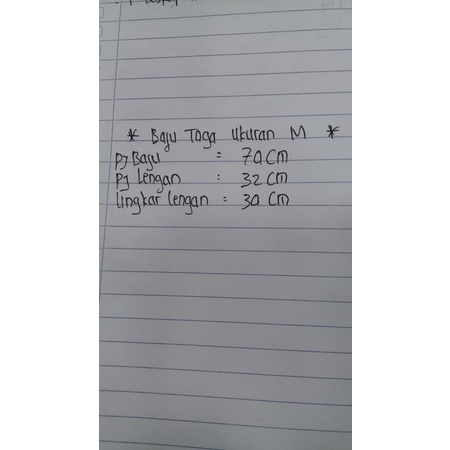 * Baju Toga Ukuran M *
Pj Baju = 70 Cm
Pj Lengan : 32 Cm
lingkar lengan = 30 Cm